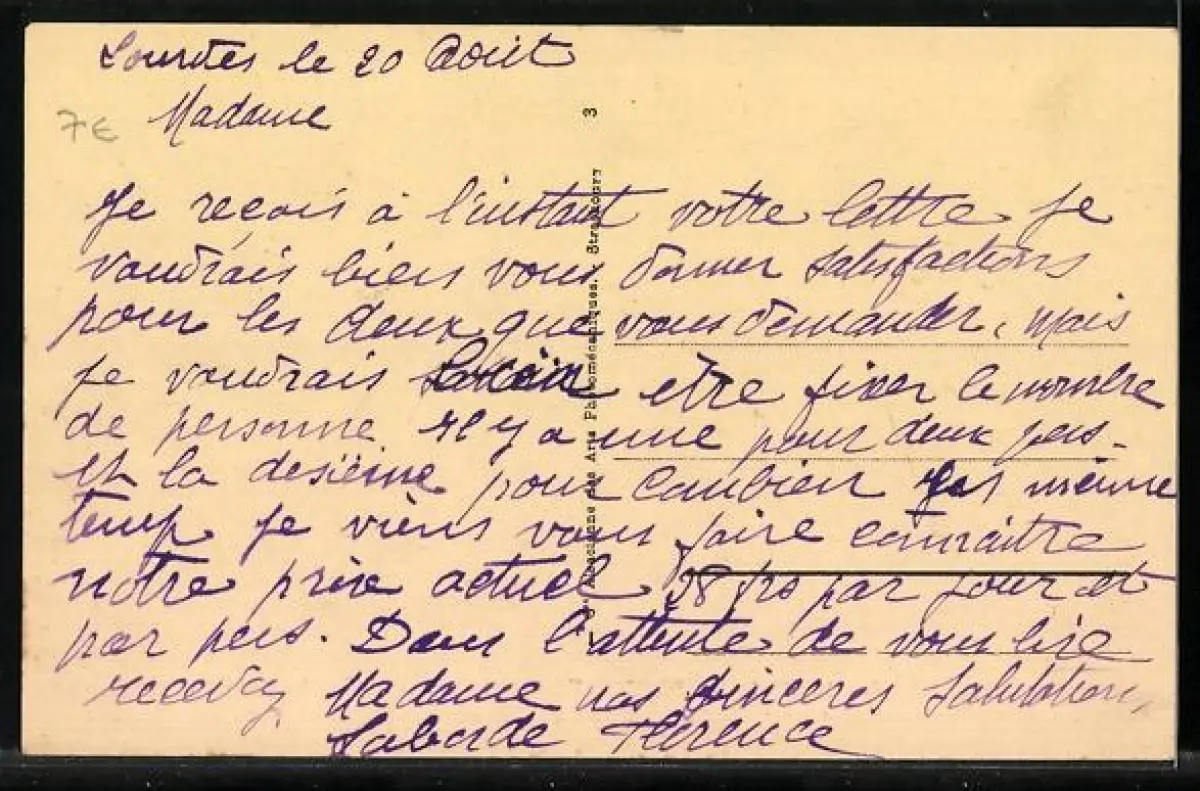 Lourdes le 20 Août
7€
Madame
Je reçois à l'instant votre lettre je
voudrais bien vous donner satisfactions
pour les deux que vous demander, mais
je voudrais être fixer le nombre
de personne. Il y a une pour deux pers-
et la desieme pour combien même
temp je viens vous faire connaître
notre prix actuel 38 frs par jour et
par pers. Dans l'attente de vous lire
recevez Madame nos sinceres Salutations
Laborde Florence
des Arts Photomécaniques. Strasbourg 3